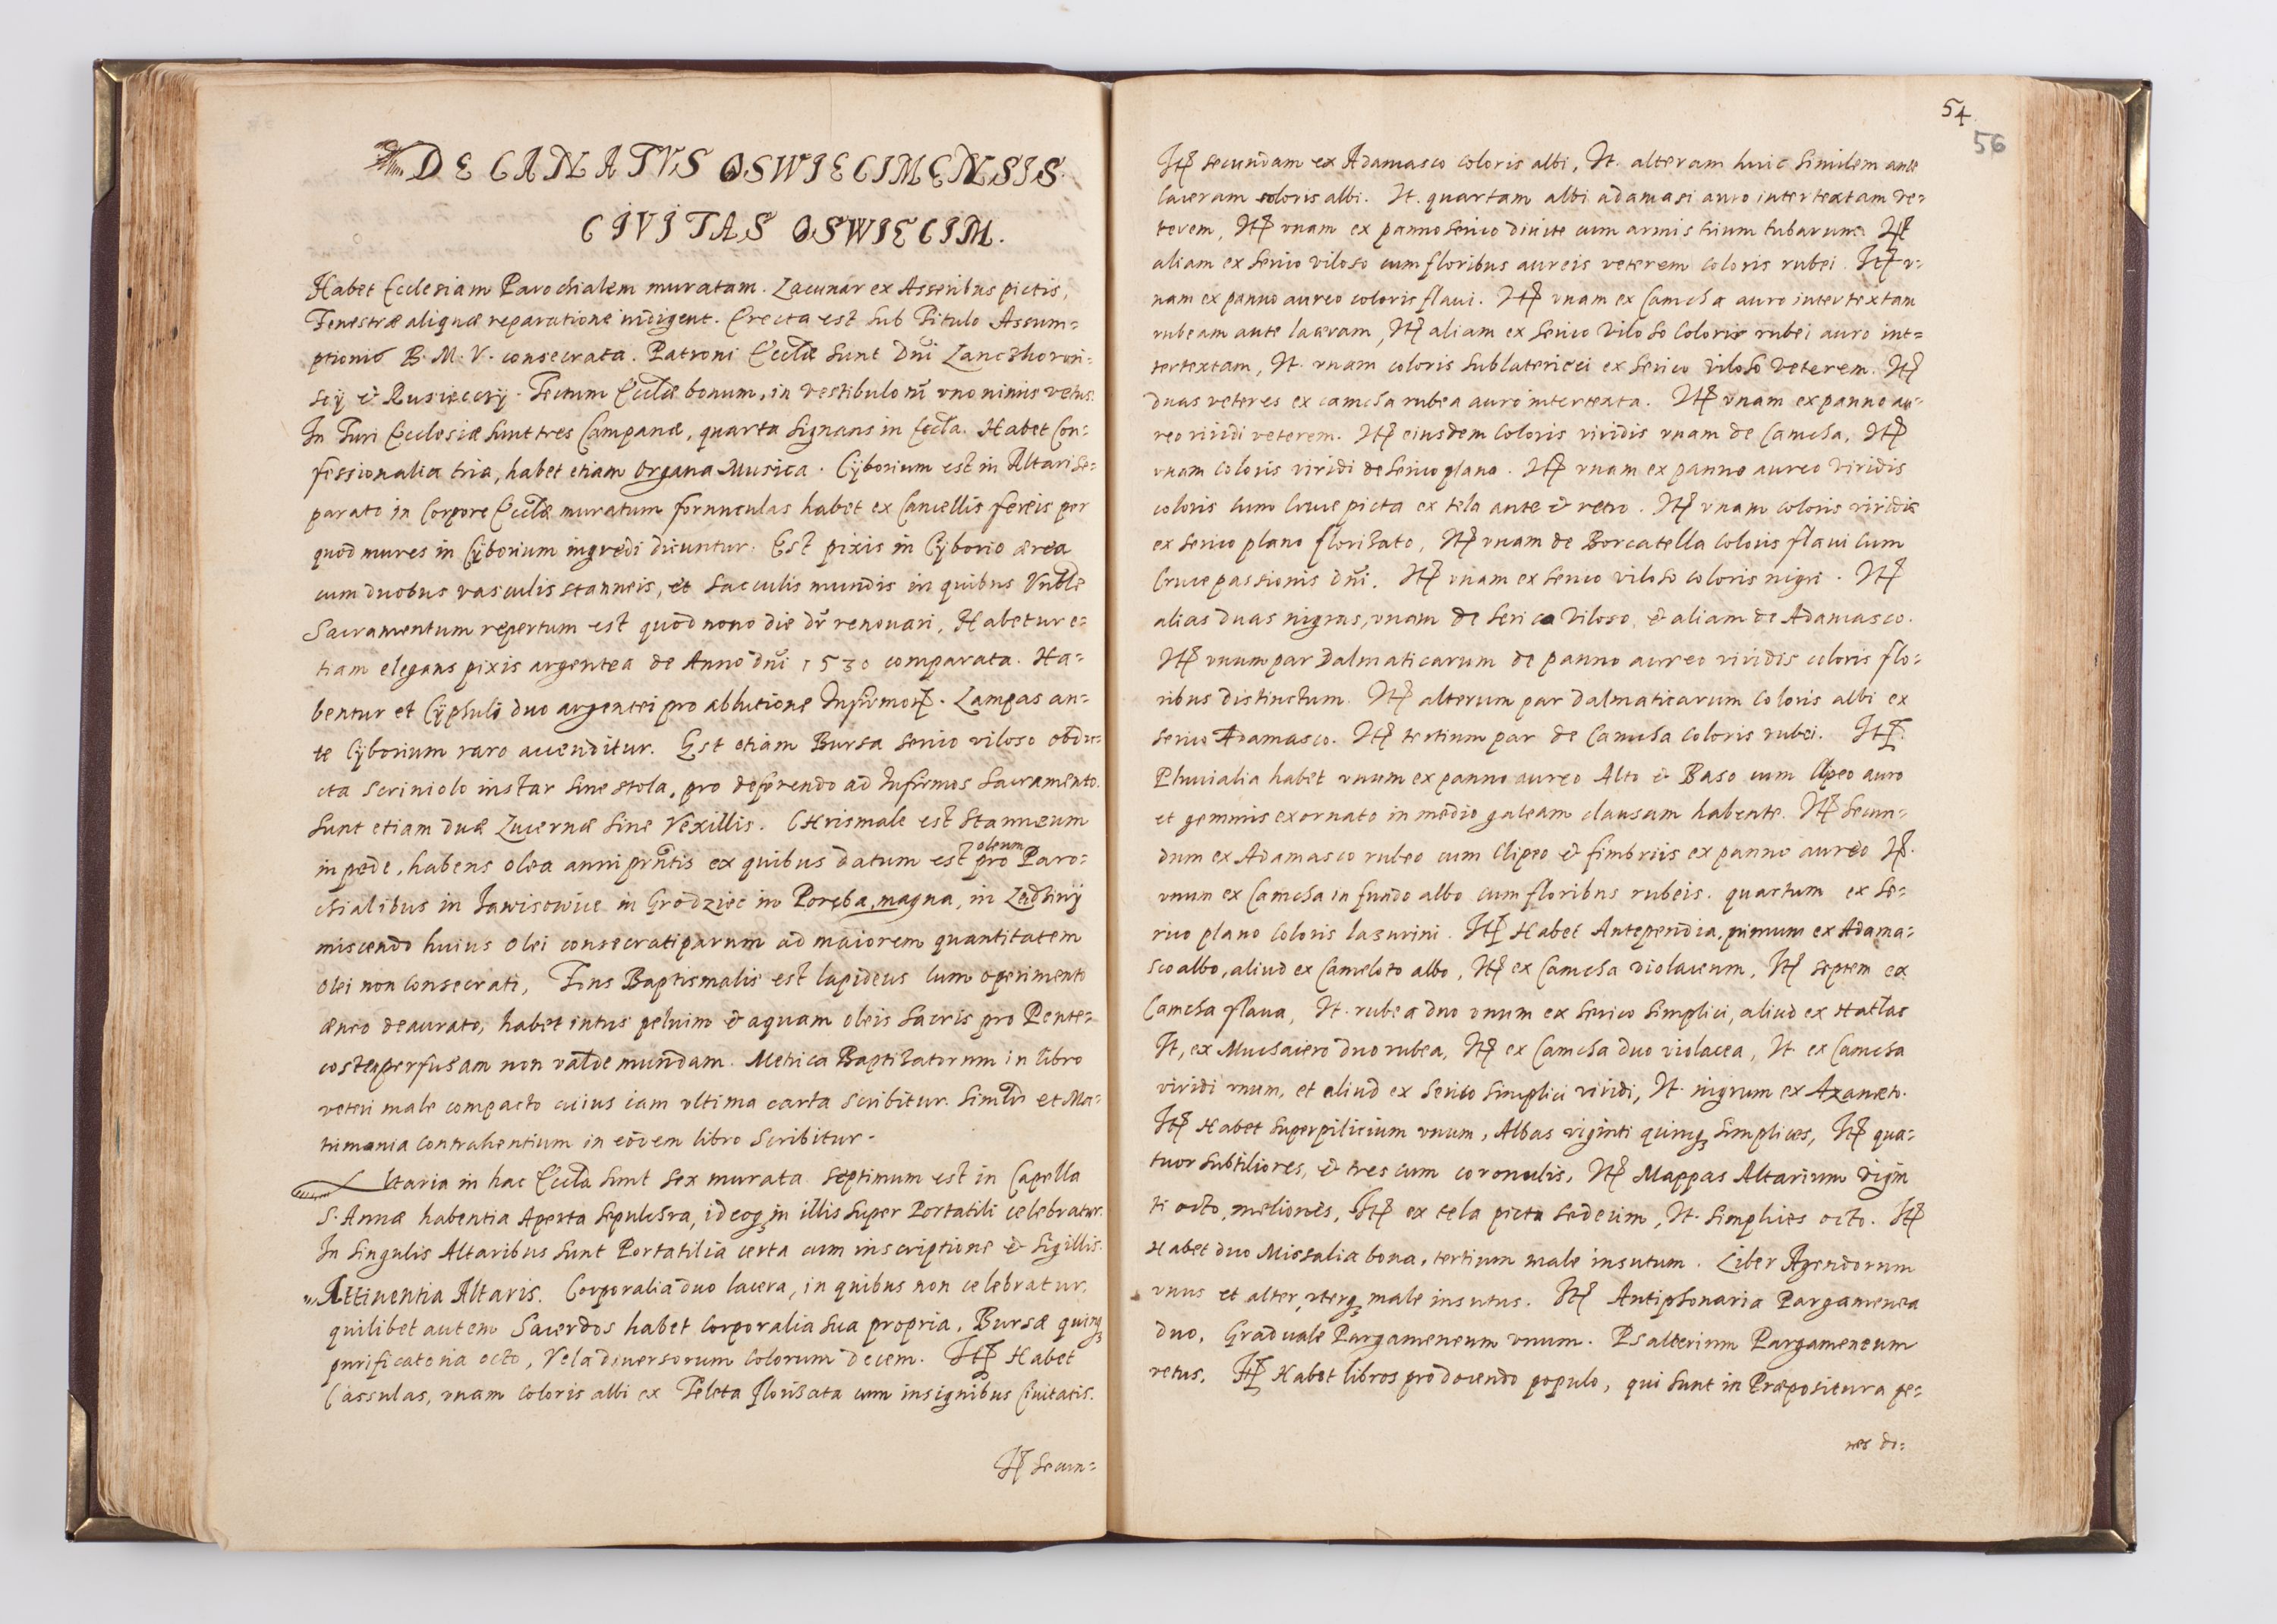 DECANATVS OSWIECIMENSIS
CIVITAS OSWIECIM.
Habet Ecclesiam Parochialem muratam. Lacunar ex Asseribus pictis,
Fenestræ aliquæ reparatione indigent. Erecta est sub Titulo Assum=
ptionis B. M. V. consecrata. Patroni Eccliæ sunt Dni Lanczkoron=
scÿ & Rusieccÿ. Tectum Eccliæ bonum, in vestibulo nî vno nimis vetus.
In Turri Ecclesiæ sunt tres Campanæ, quarta signans in Eccla. Habet Con=
fessionalia tria, habet etiam Organa Musica. Cÿborium est in Altari se=
parato in Corpore Eccliæ muratum fornnculas habet ex Cancellis ferreis per
quod mures in Cÿborium ingredi dicuntur. Est pixis in Cÿborio ærea
cum duobus vasculis stanneis, et sacculis mundis in quibus Vnble
Sacramentum repertum est quod nono die dr renouari. Habetur e=
tiam elegans pixis argentea de Anno dni 1530 comparata. Ha=
bentur et Cÿphuli duo argentei pro ablutione Infirmoꝝ. Lampas an=
te Cÿborium raro accenditur. Est etiam Bursa serico viloso obdu=
cta scriniolo instar sine stola, pro deferendo ad Infirmos Sacramento.
sunt etiam duæ Lucernæ sine Vexillis. CHrismale est stanneum
in pede, habens olea anni prntis ex quibus datum est oleum pro Paro=
chialibus in Jawisowice in Grodziec in Poręba magna, in Ledzinÿ
miscendo huius olei consecrati parum ad maiorem quantitatem
olei non consecrati, Fons Baptismalis est lapideus cum operimento
æneo deaurato, habet intus peluim & aquam oleis sacris pro Pente=
coste perfusam non valde mundam. Metrica Baptizatorum in libro
veteri male compacto cuius iam vltima carta scribitur. Simlr et Ma=
trimonia contrahentium in eodem libro scribitur.
Altaria in hac Eccla sunt sex murata septimum est in Capella
S. Annæ habentia aperta sepulchra, ideoq; in illis super Portatili celebratur.
In singulis Altaribus sunt Portatilia certa cum inscriptione & sigillis.
Attinentia Altaris. Corporalia duo lacera, in quibus non celebratur,
quilibet autem Sacerdos habet corporalia sua propria. Bursæ quinq;
purificatoria octo, Vela diuersorum colorum decem. Itꝫ Habet
Cassulas, vnam coloris albi ex Teleta florisata cum insignibus Ciuitatis.
Itꝫ secun=
54.
56
Itꝫ secundam ex Adamasco coloris albi, It. alteram huic similem ante
laceram coloris albi. It. quartam albi adamasi auro intertextam ve=
terem, Itꝫ vnam ex panno serico diuite cum armis trium tubarum. Itꝫ
aliam ex serico viloso cum floribus aureis veterem coloris rubei. Itꝫ v=
nam ex panno aureo coloris flaui. Itꝫ vnam ex Camcha auro intertextam
rubeam ante laceram, Itꝫ aliam ex serico viloso coloris rubei auro int=
tertextam, It. vnam coloris sublatericei ex serico viloso veterem. Itꝫ
duas veteres ex camcha rubea auro intertexta. Itꝫ vnam ex panno au=
reo viridi veterem. Itꝫ eiusdem coloris viridis vnam de Camcha, Itꝫ
vnam coloris viridi de serico plano. Itꝫ vnam ex panno aureo viridis
coloris cum Cruce picta ex tela ante & retro. Itꝫ vnam coloris viridis
ex serico plano florisato, Itꝫ vnam de Borcatella coloris flaui cum
Cruce passionis dni. Itꝫ vnam ex serico viloso coloris nigri. Itꝫ
alias duas nigras, vnam de serico viloso & aliam de Adamasco.
Itꝫ vnum par Dalmaticarum de panno aureo viridis coloris flo=
ribus distinctum. Itꝫ alterum par dalmaticarum coloris albi ex
serico Adamasco. Itꝫ tertium par de Camcha coloris rubei. Itꝫ.
Pluuialia habet vnum ex panno aureo Alto & Baso cum Clipeo auro
et gemmis exornato in medio galeam clausam habente. Itꝫ secun=
dum ex Adamasco rubeo cum Clipeo & fimbriis ex panno aureo Itꝫ.
vnum ex Camcha in fundo albo cum floribus rubeis. quartum ex se=
rico plano coloris lazurini. Itꝫ Habet Antependia, primum ex Adama=
sco albo, aliud ex Cameloto albo, Itꝫ ex Camcha violaceum, Itꝫ septem ex
Camcha flaua, It. rubea duo vnum ex serico simplici, aliud ex Hatlas
It, ex Muchaiero duo rubea, Itꝫ ex Camcha duo violacea, It. ex Camcha
viridi vnum, et aliud ex serico simplici viridi, It. nigrum ex Axameto.
Itꝫ Habet superpilicium vnum, Albas viginti quinq; simplices, Itꝫ qua=
tuor subtiliores, & tres cum coronulis, Itꝫ Mappas Altarium vigin
ti octo, meliores, Itꝫ ex tela picta sedecim, It. simplices octo. Itꝫ
Habet duo Missalia bona, tertium male insutum. Liber Agendorum
vnus et alter, vterq; male insutus. Itꝫ Antiphonaria Pargamenea
duo, Graduale Pargameneum vnum. Psalterium Pargameneum
vetus. Itꝫ Habet libros pro docendo populo, qui sunt in Præpositura pe=
nes do=